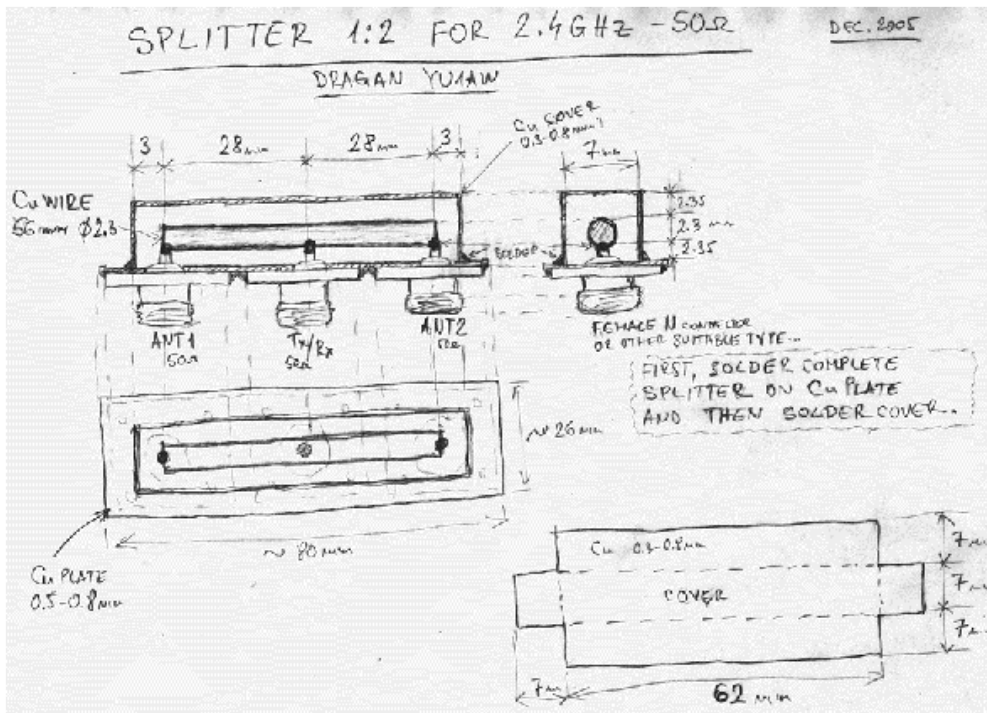 SPLITTER 1:2 FOR 2.4GHz - 50Ω
DEC. 2005
DRAGAN YU1AW
3
28mm
28mm
3
Cu COVER
0.3-0.8mm
7mm
Cu WIRE
56mm Ø2.3
2.35
2.3 mm
2.35
SOLDER
ANT1
50Ω
Tx/Rx
50Ω
ANT2
50Ω
FEMALE N CONNECTOR
OR OTHER SUITABLE TYPE...
FIRST, SOLDER COMPLETE
SPLITTER ON Cu PLATE
AND THEN SOLDER COVER.
~26mm
~80mm
Cu PLATE
0.5-0.8mm
Cu 0.3-0.8mm
COVER
7mm
7mm
7mm
7mm
62 mm